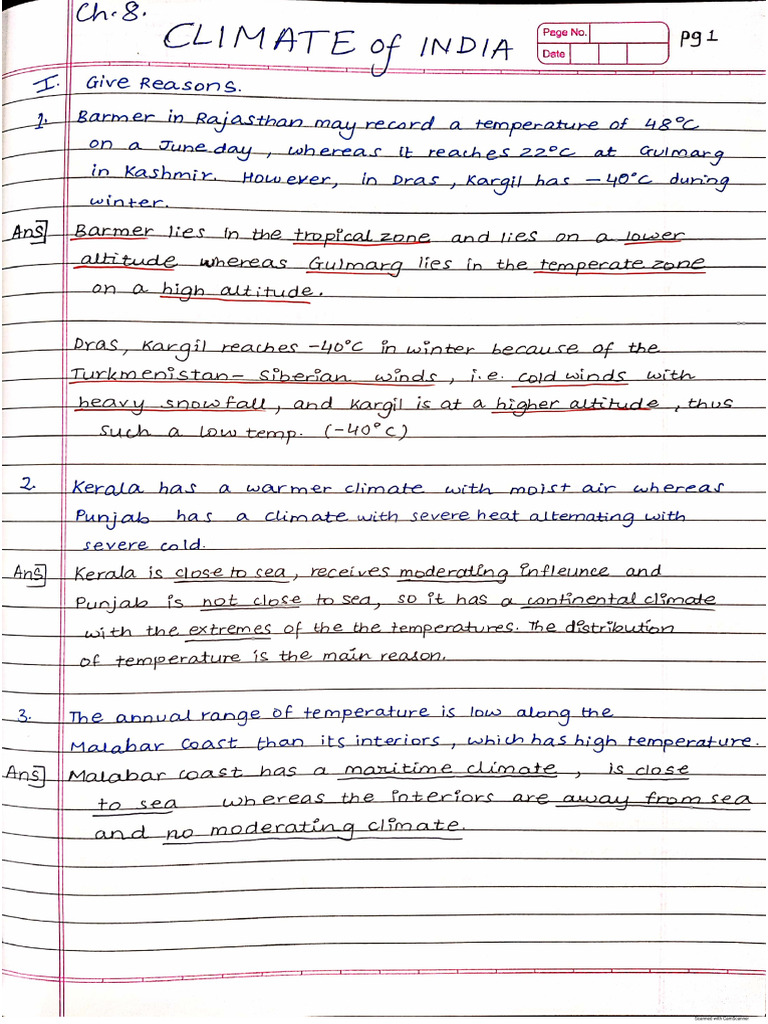 Ch. 8.
CLIMATE of INDIA
Page No.
Date
pg 1
I. Give Reasons.
1. Barmer in Rajasthan may record a temperature of 48°C
on a June day, whereas it reaches 22°C at Gulmarg
in Kashmir. However, in Dras, Kargil has -40°C during
winter.
Ans] Barmer lies in the tropical zone and lies on a lower
altitude whereas Gulmarg lies in the temperate zone
on a high altitude.
Dras, Kargil reaches -40°C in winter because of the
Turkmenistan- Siberian winds, i.e. cold winds with
heavy snowfall, and Kargil is at a higher altitude, thus
such a low temp. (-40°C)
2. Kerala has a warmer climate with moist air whereas
Punjab has a climate with severe heat alternating with
severe cold.
Ans] Kerala is close to sea, receives moderating infleunce and
Punjab is not close to sea, so it has a continental climate
with the extremes of the the temperatures. The distribution
of temperature is the main reason.
3. The annual range of temperature is low along the
Malabar Coast than its interiors, which has high temperature.
Ans] Malabar coast has a maritime climate, is close
to sea whereas the interiors are away from sea
and no moderating climate.
Scanned with CamScanner